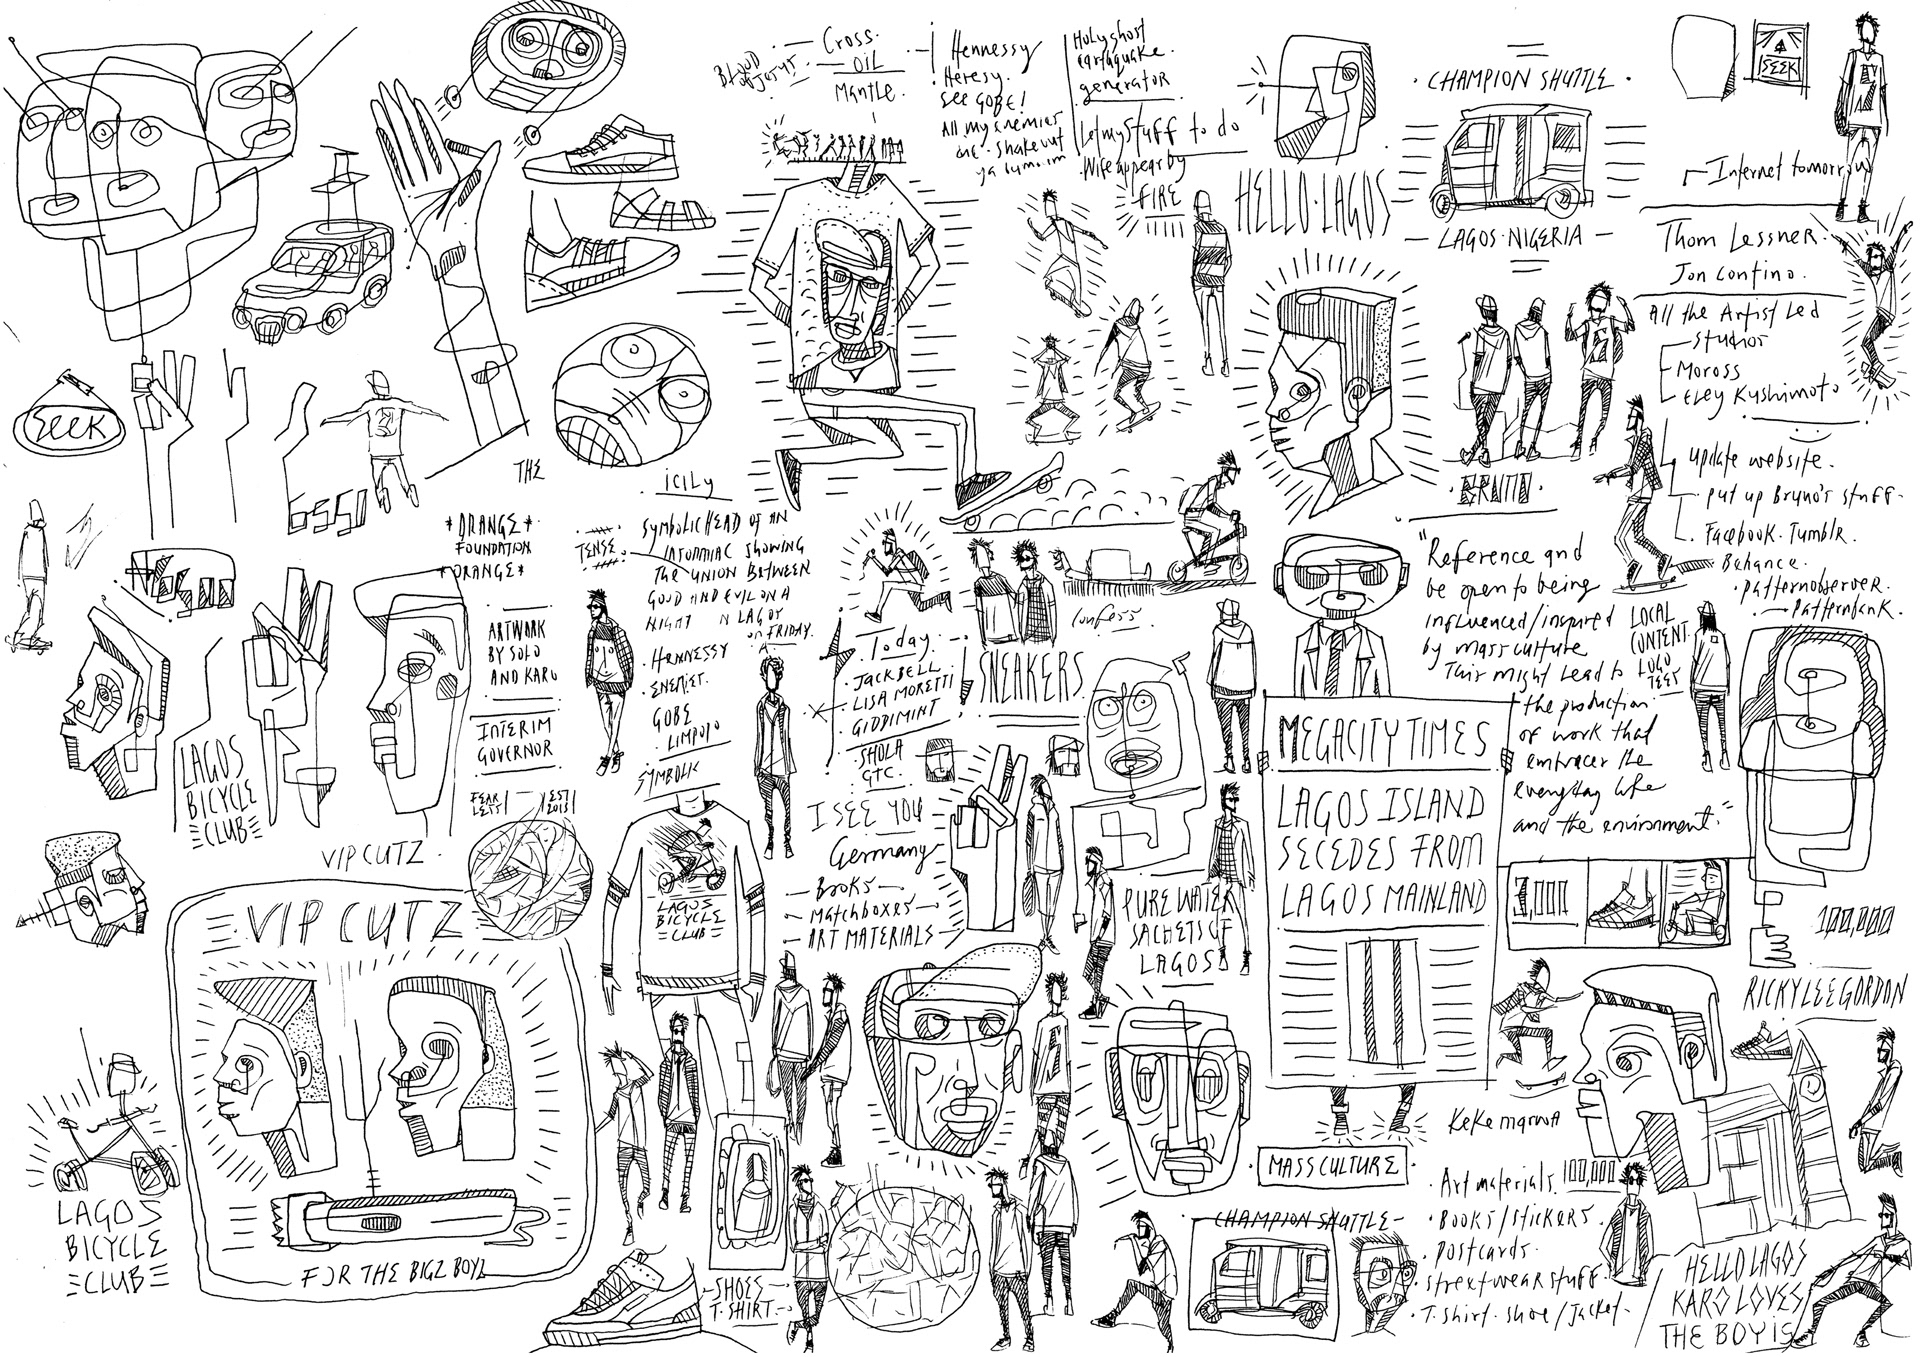 Cross.
OIL
Mantle.
Hennessy
Heresy.
See GOBE!
All my enemies
Holyghost
earthquake
generator
Let my stuff to do
Wife appear by
FIRE
HELLO·LAGOS
·CHAMPION SHUTTLE·
LAGOS·NIGERIA
SEEK
Internet tomorrow
Thom Lessner.
Jon Contino.
All the Artist Led
Studios
Moross
Eley Kishimoto
update website.
put up Bruno's stuff.
Facebook. Tumblr.
Behance.
·patternobserver.
Patternbank.
SEEK
THE
*ORANGE*
FOUNDATION
*ORANGE*
ARTWORK
BY SOLO
AND KARO
INTERIM
GOVERNOR
FEAR
LESS
EST
2013
iCiLy
TENSE.
SYMBOLIC HEAD OF AN
INSOMNIAC SHOWING
THE UNION BETWEEN
GOOD AND EVIL ON A
NIGHT IN LAGOS
on FRIDAY.
·HENNESSY
·ENEMIES.
GOBE
LIMPOPO
SYMBOLIC
Today.
·JACK BELL
·LISA MORETTI
GIDDIMINT
SHOLA
GTC.
I SEE YOU
Germany
BOOKS
Matchboxes
ART MATERIALS
Confess
SNEAKERS
BRUNO
"Reference and
be open to being
influenced/inspired
by mass culture
This might lead to
the production
of work that
embraces the
everyday life
and the environment."
LOCAL
CONTENT.
LOGO
TEST
MEGACITY TIMES
LAGOS ISLAND
SECEDES FROM
LAGOS MAINLAND
3,000
100,000
RICKY LEE GORDON
PURE WATER
SACHETS OF
LAGOS
LAGOS
BICYCLE
CLUB
VIP CUTZ.
VIP CUTZ
FOR THE BIGZ BOYZ
LAGOS
BICYCLE
CLUB
LAGOS
BICYCLE
CLUB
SHOES
T.SHIRT
MASS CULTURE
CHAMPION SHUTTLE
Keke marwa
·Art materials. 100,000
·BOOKS/STICKERS.
·Postcards.
·Streetwear stuff.
·T.shirt. shoe/Jacket.
HELLO LAGOS
KARO LOVES
THE BOY IS